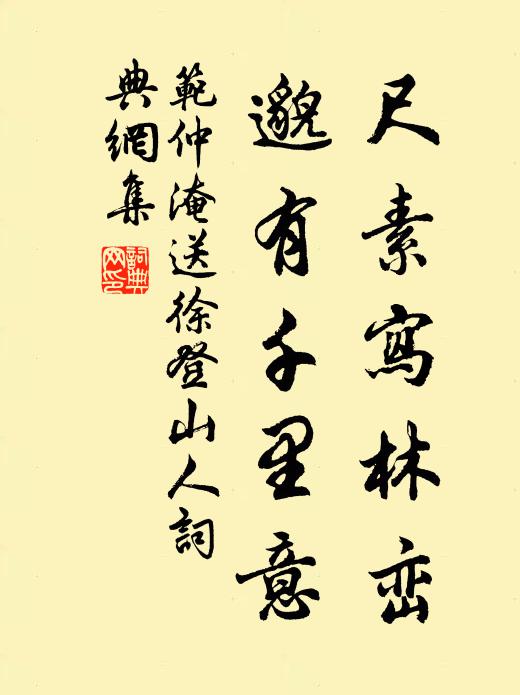 尺素寫林峦
邈有千里意
範仲淹送徐登山人詞
典網集
詞典網印